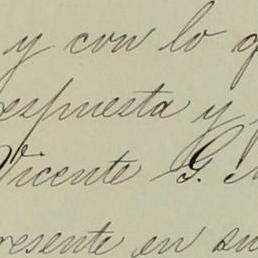 y con lo q
espuesta y
Vicente G.
resente en su